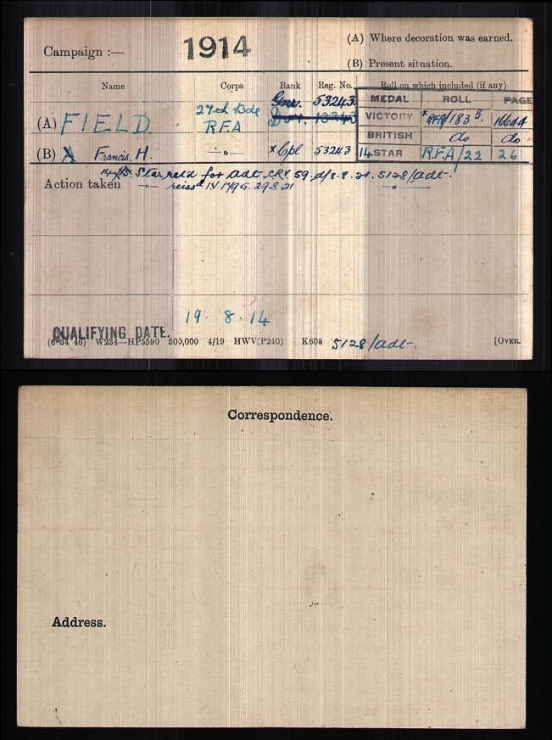 Campaign :— 1914 (A) Where decoration was earned.
(B) Present situation.
Name Corps Rank Reg. No. Roll on which included (if any)
MEDAL ROLL PAGE
(A) FIELD 27th Bde RFA Gnr. 53243 VICTORY RFA/183B.
BRITISH do do
(B) Francis H. —"— × Cpl 53243 14 STAR RFA/22 26
Action taken 14 Star retd for adt 59 5128/adt.
—"— 29.8.21 —"—
19. 8. 14
QUALIFYING DATE.
W234—HP5590 500,000 4/19 HWV(P240) K608 5128/adt. [OVER.
Correspondence.
Address.